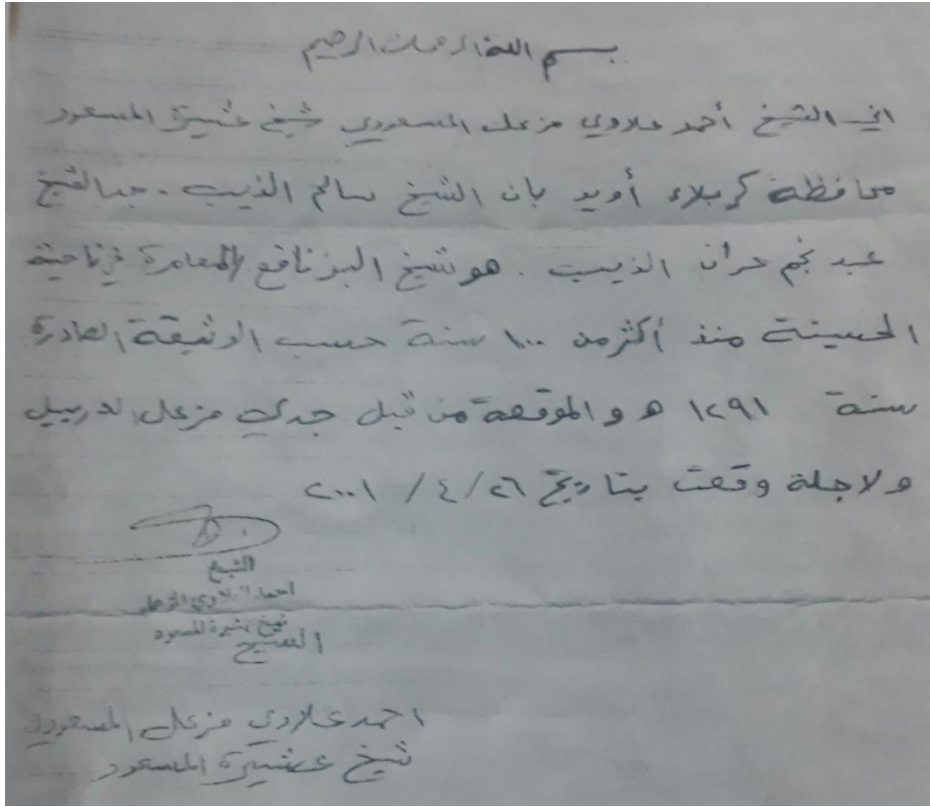 بسم الله الرحمن الرحيم
اني الشيخ أحمد علاوي مزعل المسعودي شيخ عشيرة المسعود
محافظة كربلاء أويد بان الشيخ سالم الذيب . جد الشيخ
عبد نجم حران الذيب . هو شيخ البو نافع المعامرة في ناحية
الحسينية منذ أكثر من ١٠٠ سنة حسب الوثيقة الصادرة
سنة ١٢٩١ ه والموقعة من قبل جدي مزعل
ولاجلة وقعت بتاريخ ٢٦ / ٤ / ٢٠٠١
الشيخ
احمد
شيخ عشيرة المسعود
الشيخ
احمد علاوي مزعل المسعودي
شيخ عشيرة المسعود